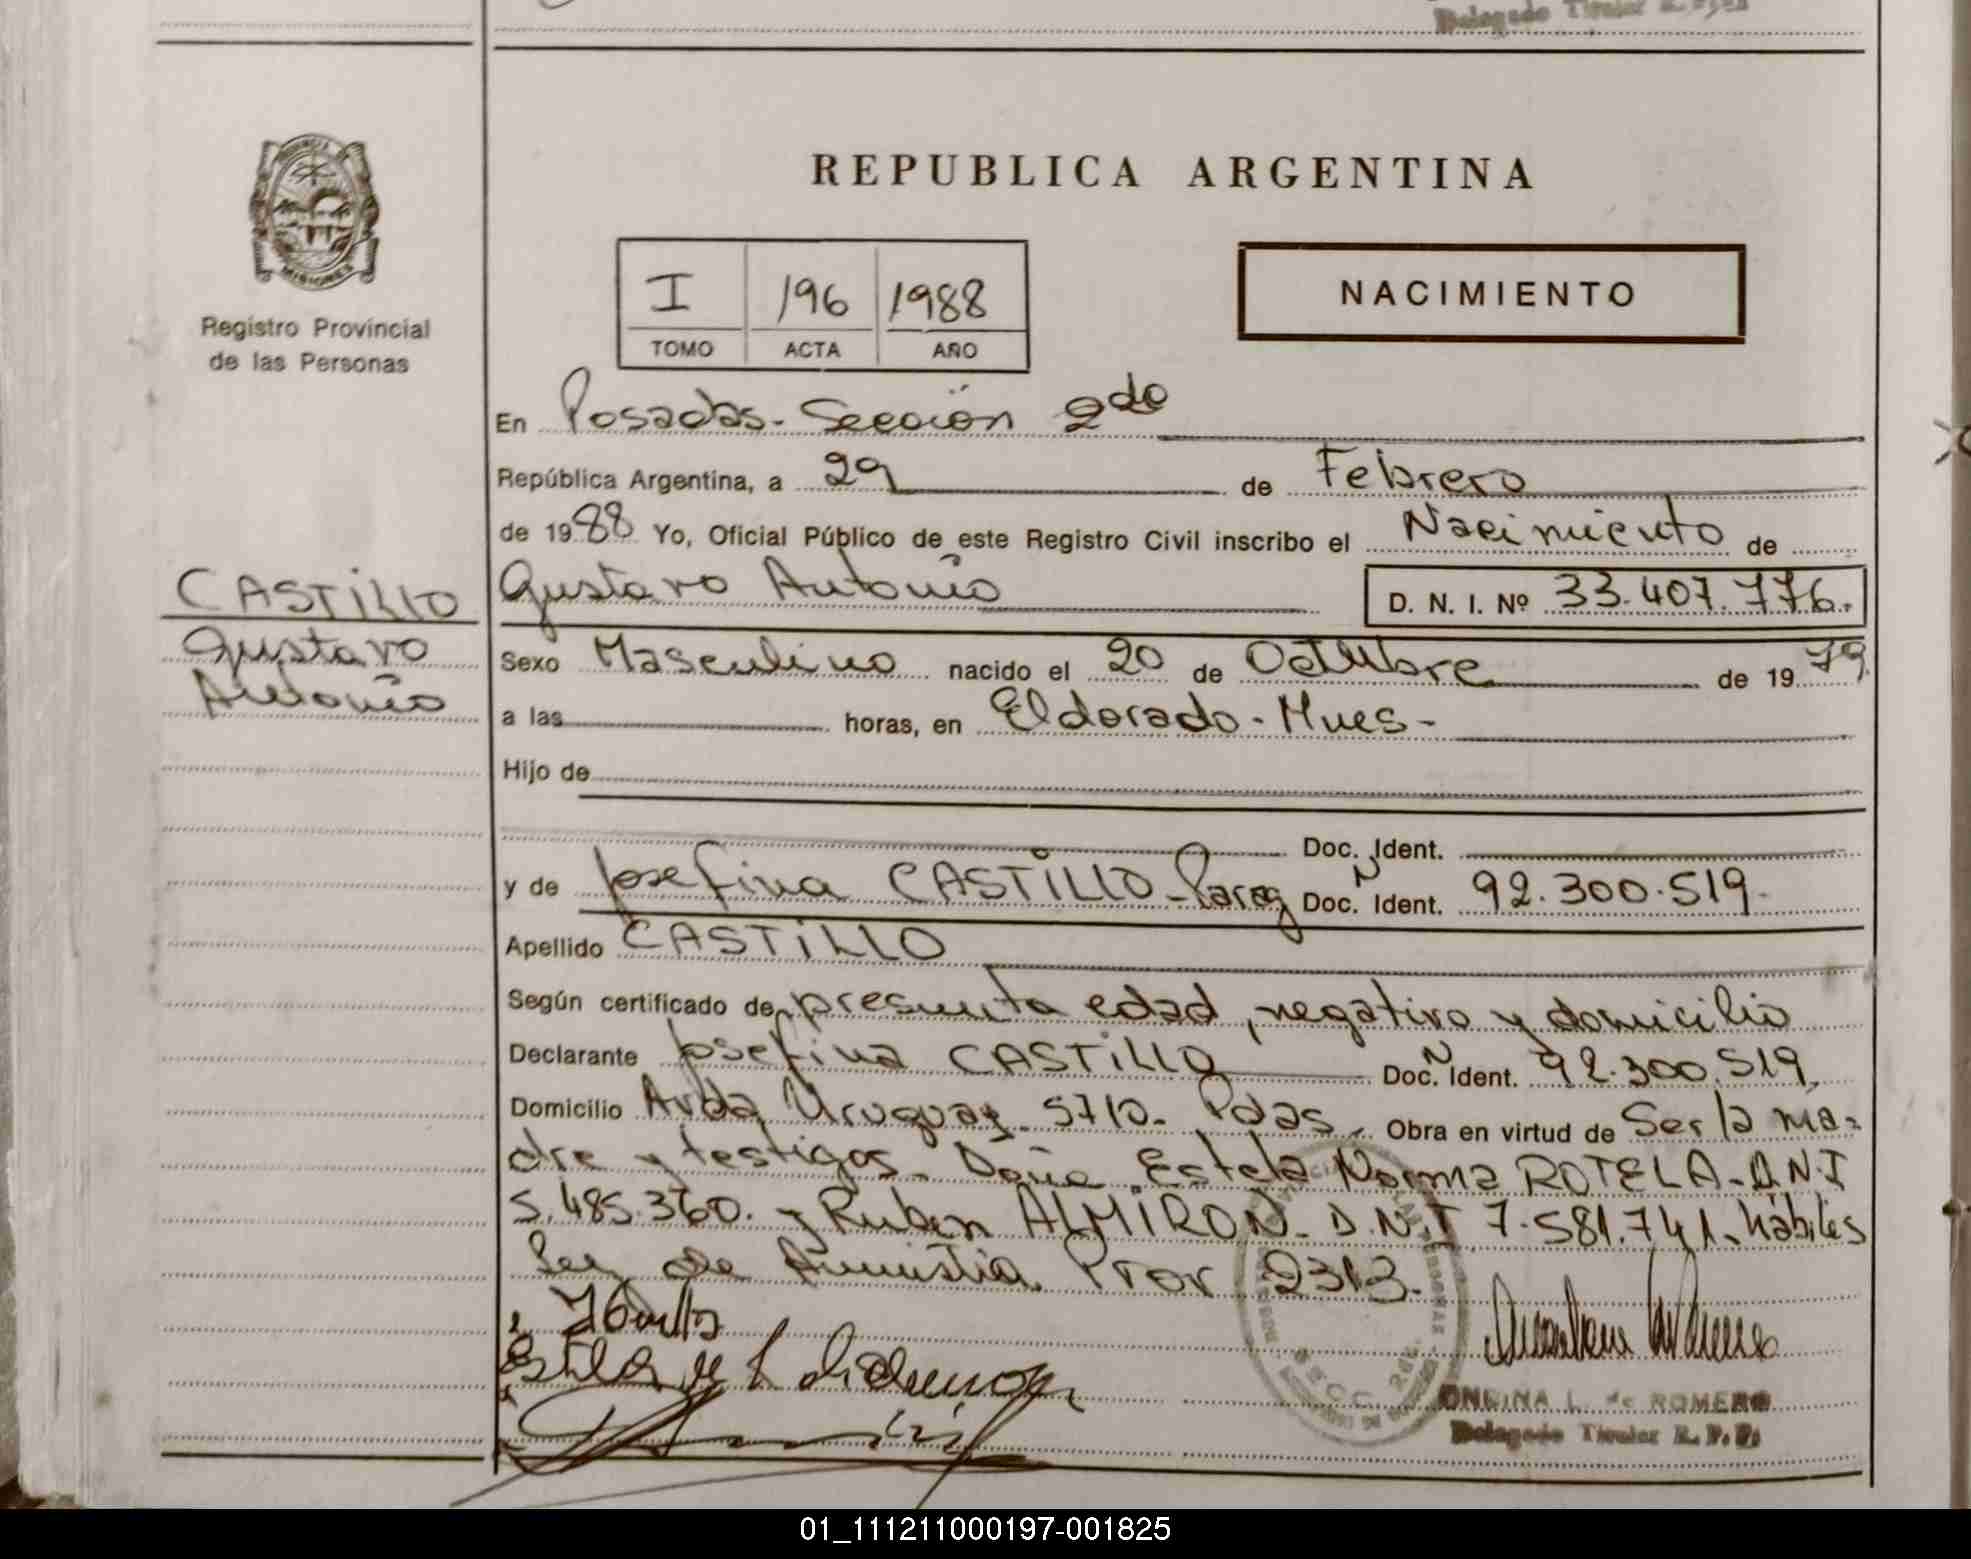 Delegado Titular R.P.P.
REPUBLICA ARGENTINA
MISIONES
Registro Provincial
de las Personas
I 196 1988
TOMO ACTA AÑO
NACIMIENTO
En Posadas - Sección 2do
República Argentina, a 29 de Febrero
de 1988 Yo, Oficial Público de este Registro Civil inscribo el Nacimiento de
CASTILLO
Gustavo
Antonio
Gustavo Antonio D. N. I. Nº 33.407.776.
Sexo Masculino nacido el 20 de Octubre de 1979
a las horas, en Eldorado - Mnes -
Hijo de
Doc. Ident.
y de Josefina CASTILLO - Parag Doc. N Ident. 92.300.519-
Apellido CASTILLO
Según certificado de presunta edad, negativo y domicilio
Declarante Josefina CASTILLO Doc. N Ident. 92.300.519
Domicilio Avda Uruguay 5710- Pdas. Obra en virtud de Ser la ma-
dre y testigos. Doña Estela Norma ROTELA - D.N.I
5.485.360. y Ruben ALMIRON - D.N.I 7.581.741. hábiles
Ley de Amnistia. Prov 2313.
ONDINA L. de ROMERO
Delegado Titular R.P.P.
01_111211000197-001825